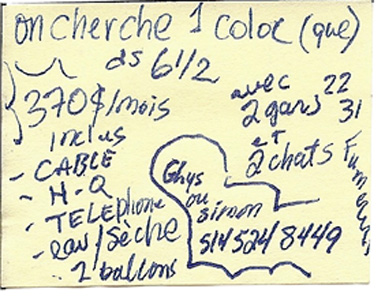 on cherche 1 coloc (que)
ds 6 1/2
370$/mois
inclus
- CABLE
- H-Q
- TELEPHONE
- lav/sèche
2 balcons
avec
2 gars 22 31
et
2 chats
Fumeurs
Ghys
ou
simon
514 524 8449